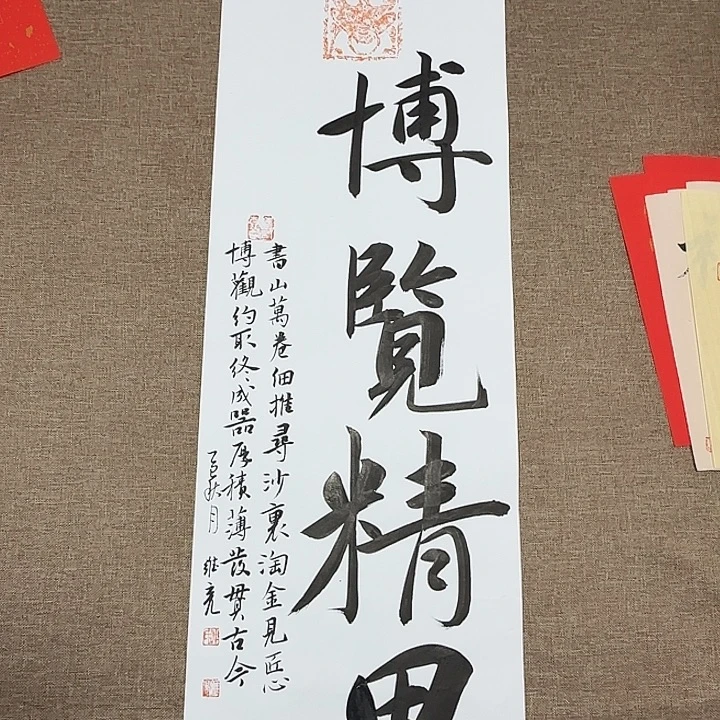 博覽精思
書山萬卷細推尋沙裏淘金見匠心
博觀約取終成器厚積薄發貫古今
乙巳秋月 維亮